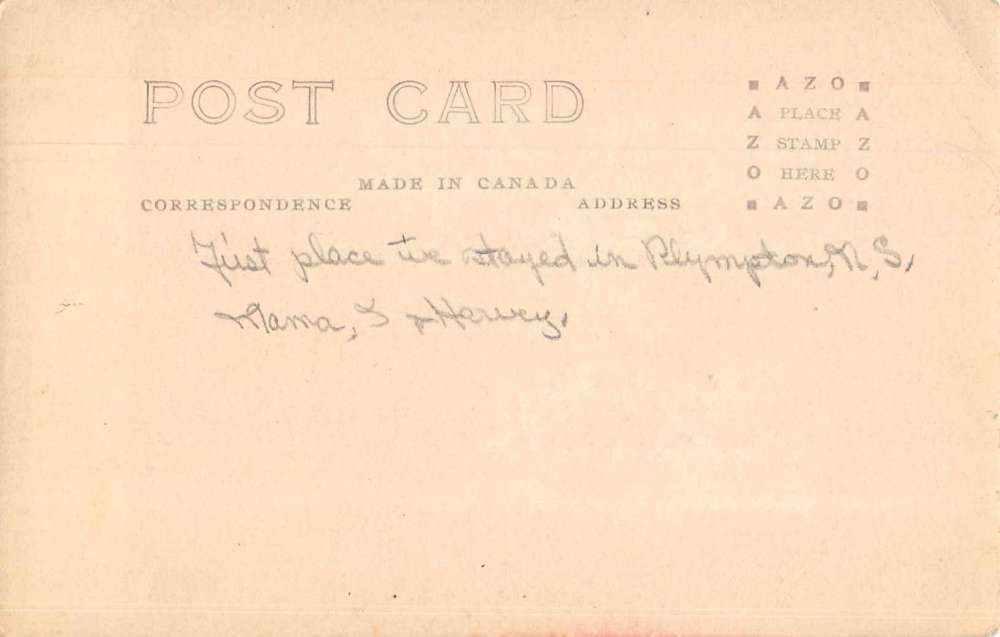 POST CARD
A Z O
A PLACE A
Z STAMP Z
O HERE O
A Z O
MADE IN CANADA
CORRESPONDENCE
ADDRESS
First place we stayed in Plympton, N, S,
Mama, S & Harvey.